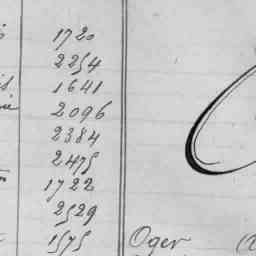 1720
2254
1641
2096
2384
2475
1722
2529
1575
Oger